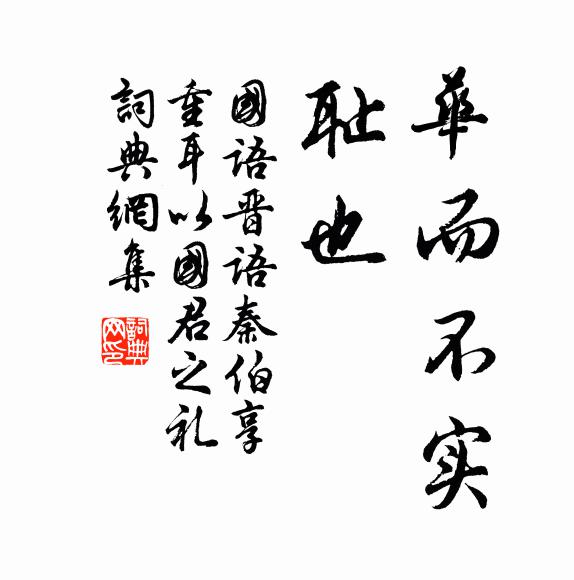 華而不实
耻也
國语晋语秦伯享
重耳以國君之礼
詞典網集
詞典
网印